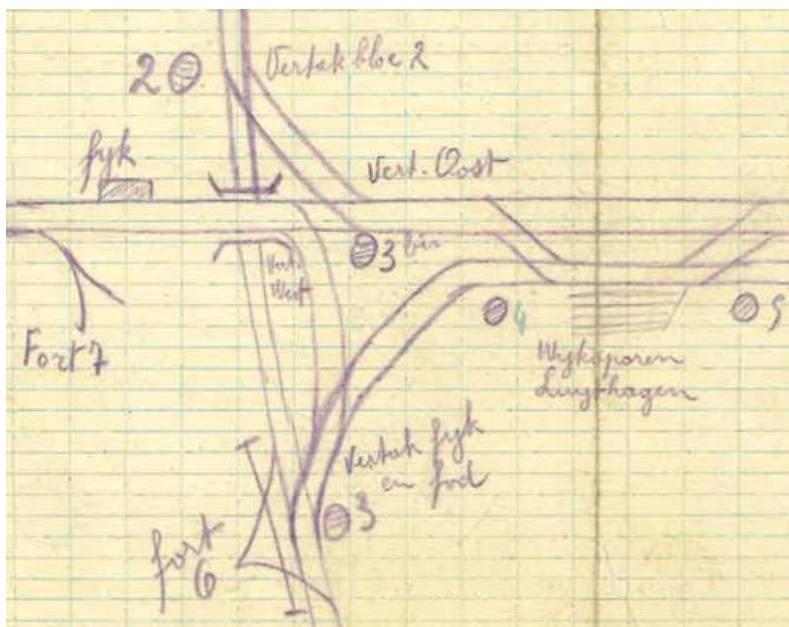 2 Vertak bloc 2
fyk
Vert. Oost
3 bis
Vert.
West
4
5
Fort 7
Wijksporen
Luythagen
Vertak fyk
en fod
3
fort
6